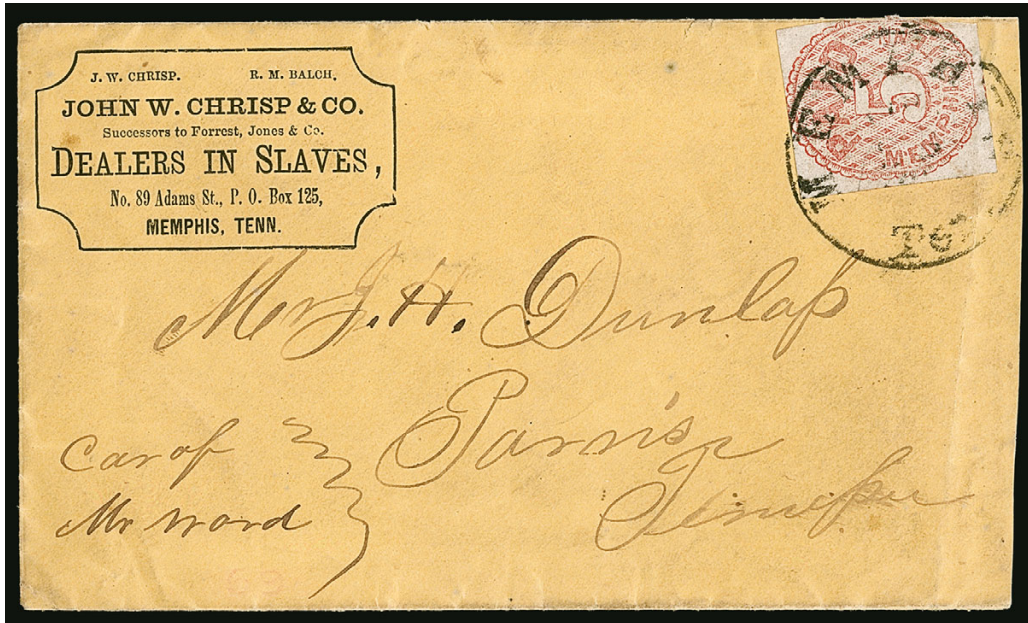 J. W. CHRISP. R. M. BALCH.
JOHN W. CHRISP & CO.
Successors to Forrest, Jones & Co.
DEALERS IN SLAVES,
No. 89 Adams St., P. O. Box 125,
MEMPHIS, TENN.
5
MEMPHIS
Mr J. H. Dunlap
Parris
Car of
Mr Word